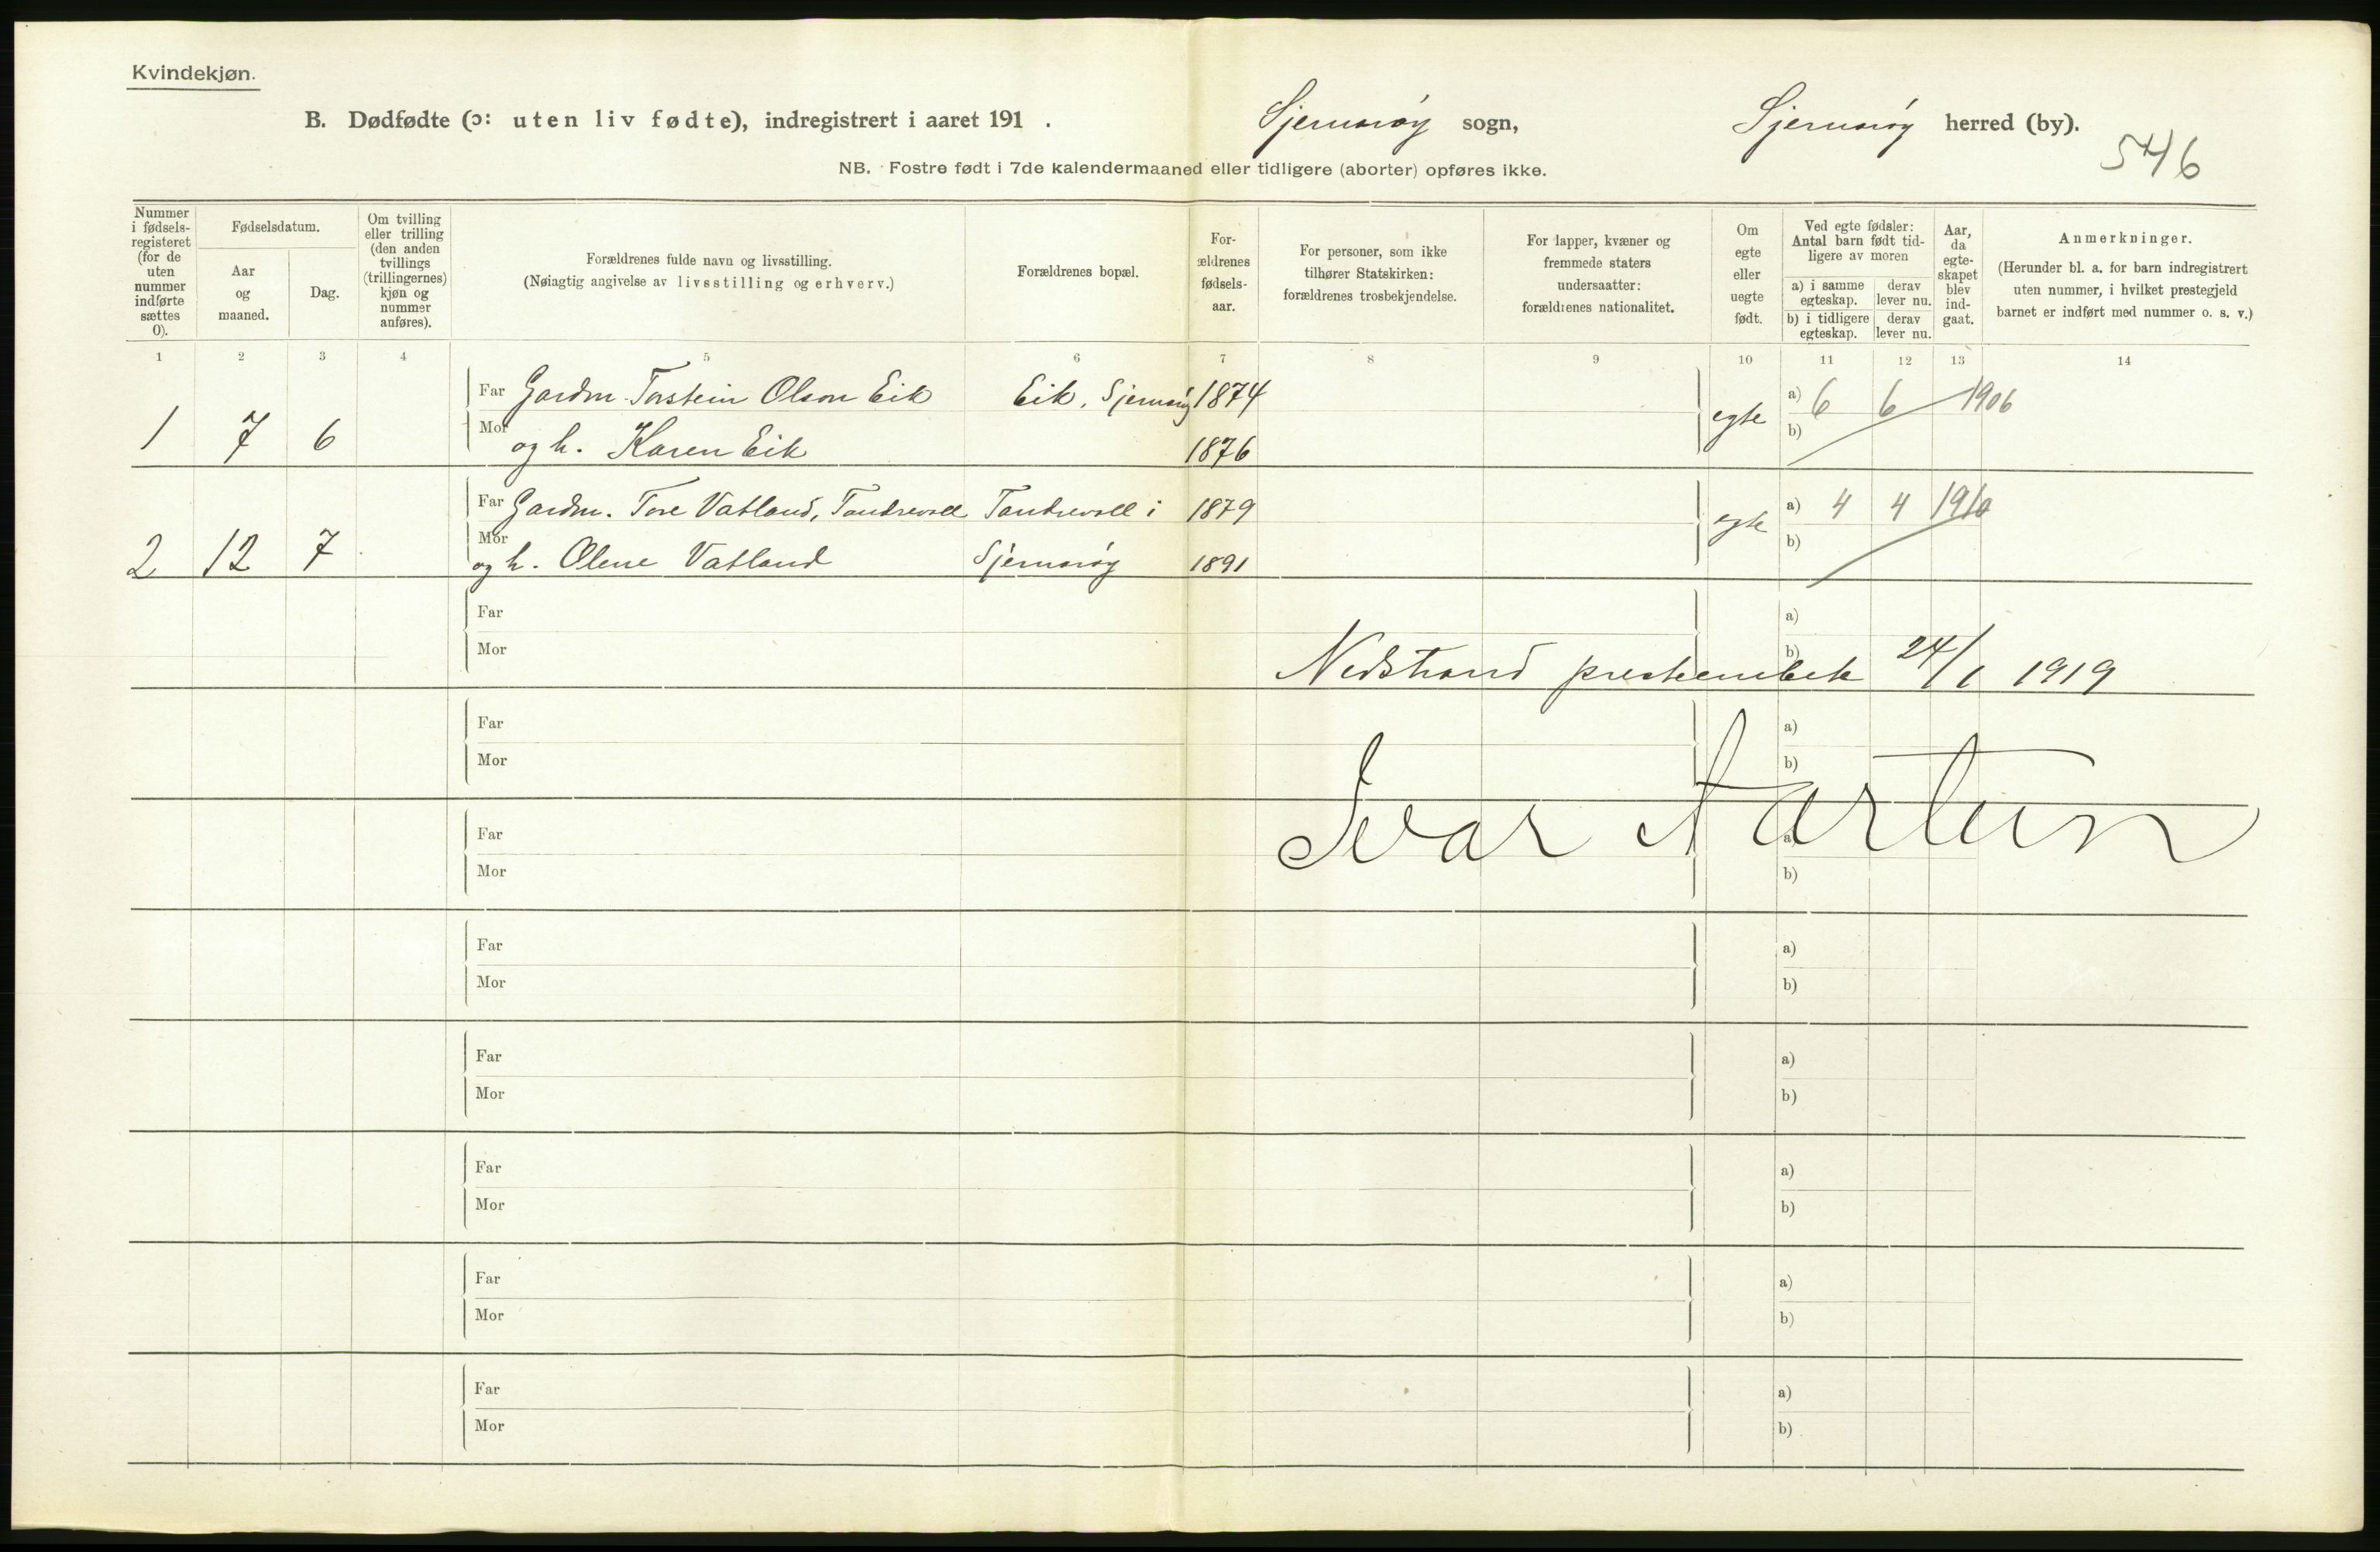 Kvindekjøn.
B. Dødfødte (ɔ: uten liv fødte), indregistrert i aaret 191 . Sjernarøy sogn, Sjernarøy herred (by).
546
NB. Fostre født i 7de kalendermaaned eller tidligere (aborter) opføres ikke.
Nummer i fødsels-registeret (for de uten nummer indførte sættes 0).
Fødselsdatum.
Aar og maaned.
Dag.
Om tvilling eller trilling (den anden tvillings (trillingernes) kjøn og nummer anføres).
Forældrenes fulde navn og livsstilling.
(Nøiagtig angivelse av livsstilling og erhverv.)
Forældrenes bopæl.
For-ældrenes fødsels-aar.
For personer, som ikke tilhører Statskirken: forældrenes trosbekjendelse.
For lapper, kvæner og fremmede staters undersaatter: forældrenes nationalitet.
Om egte eller uegte født.
Ved egte fødsler: Antal barn født tid-ligere av moren
a) i samme egteskap. derav lever nu.
b) i tidligere egteskap. derav lever nu.
Aar, da egte-skapet blev ind-gaat.
Anmerkninger.
(Herunder bl. a. for barn indregistrert uten nummer, i hvilket prestegjeld barnet er indført med nummer o. s. v.)
1 2 3 4 5 6 7 8 9 10 11 12 13 14
Far Gardm. Torstein Olson Eik Eik, Sjernarøy 1874 a) 6 6 1906
1 7 6 Mor og h. Karen Eik 1876 egte b)
Far Gardm. Tore Vatland, Tandrevoll Tandrevoll i 1879 a) 4 4 1910
2 12 7 Mor og h. Olene Vatland Sjernarøy 1891 egte b)
Far a)
Mor b)
Nedstrand prestembete 24/1 1919
Far a)
Mor b)
Ivar Aartun
Far a)
Mor b)
Far a)
Mor b)
Far a)
Mor b)
Far a)
Mor b)
Far a)
Mor b)
Far a)
Mor b)